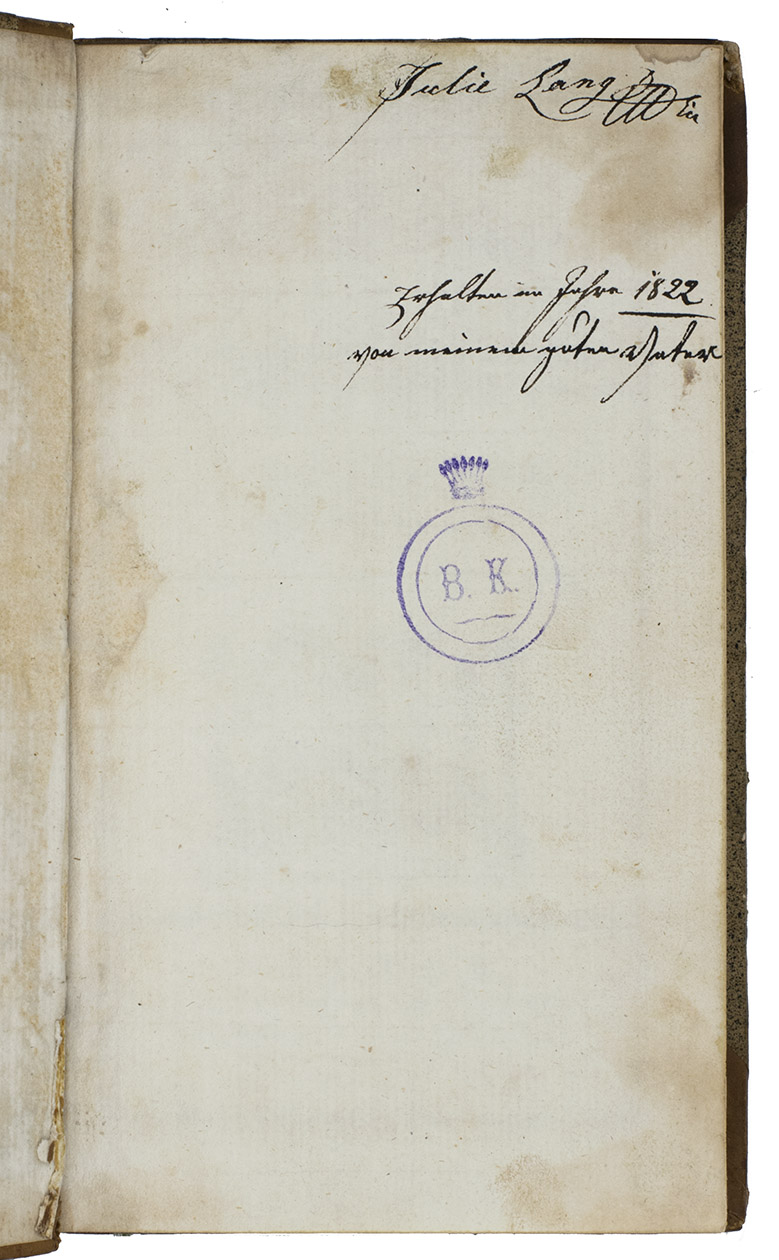 Julie Lang
Erhalten im Jahre 1822
von meinem guten Vater
B. K.